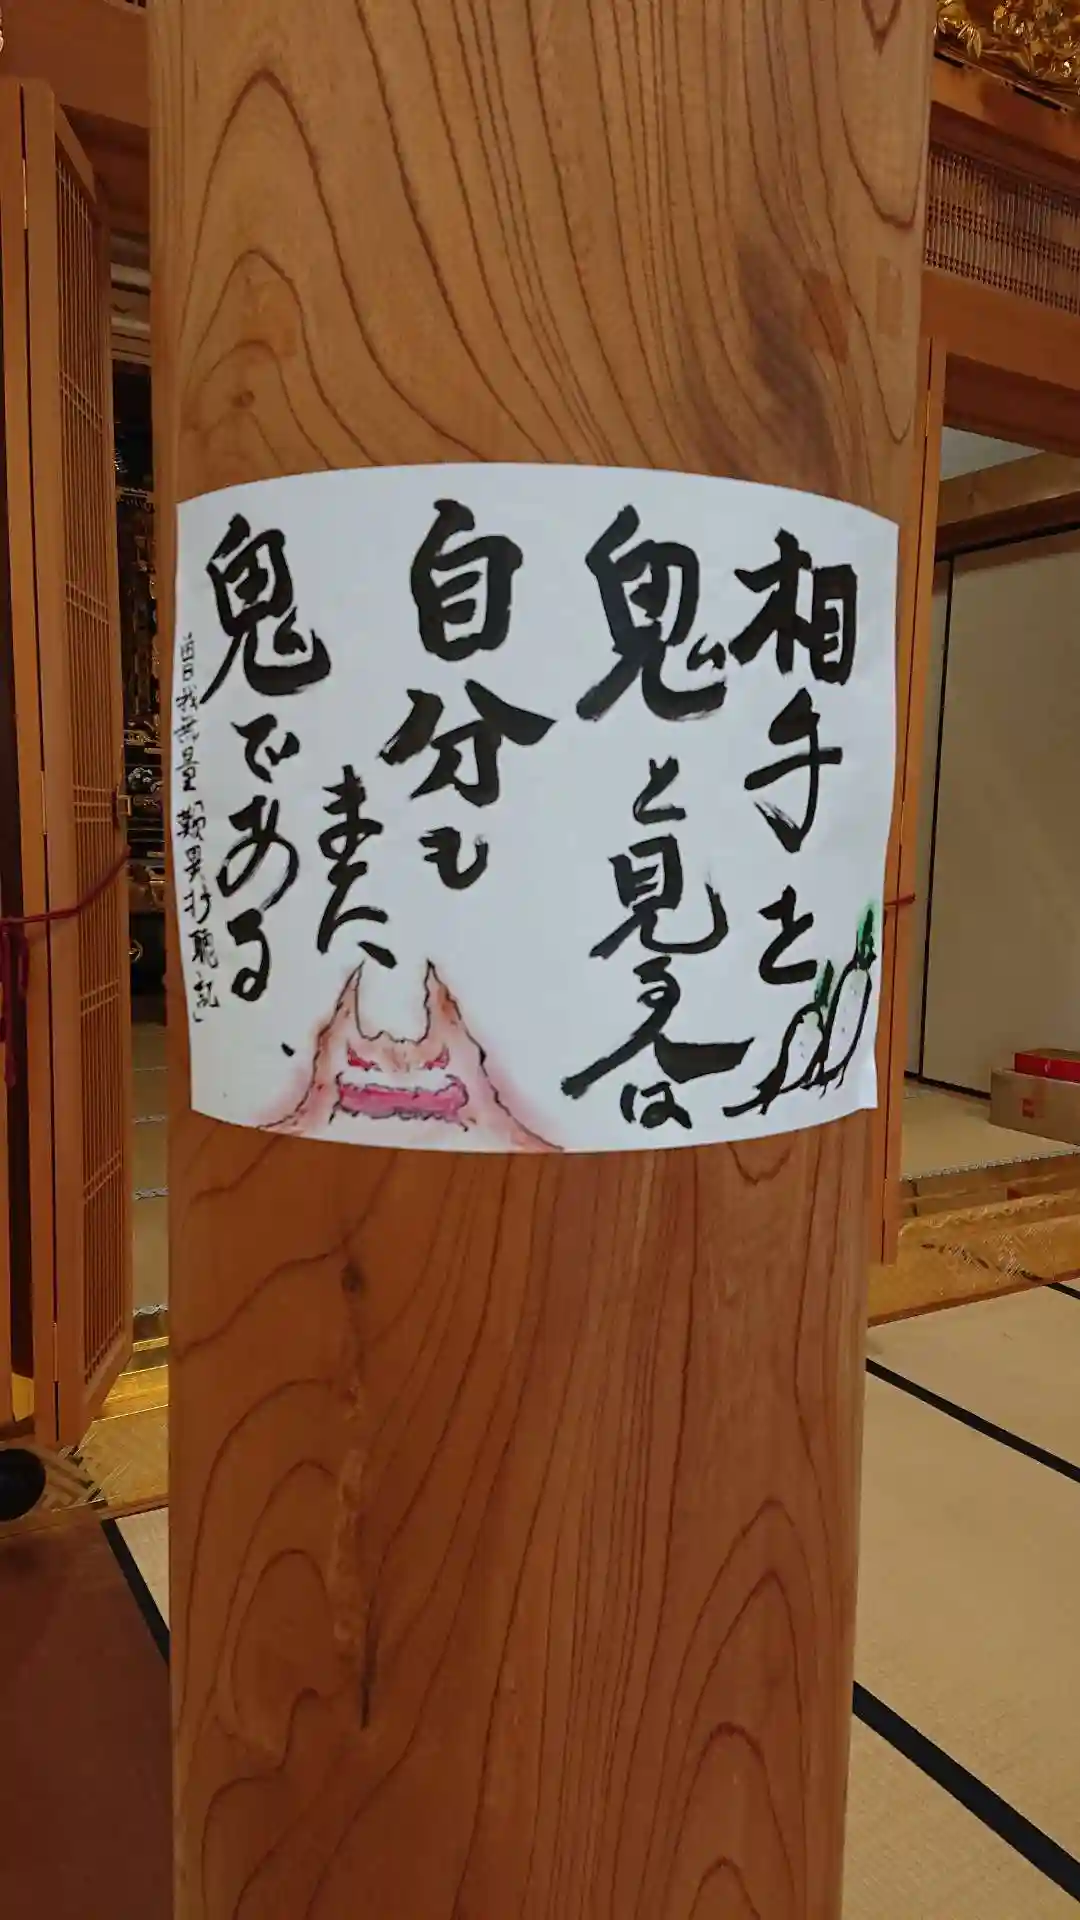 相手を
鬼と見る人は
自分も
また
鬼である
曽我量深「歎異抄聴記」